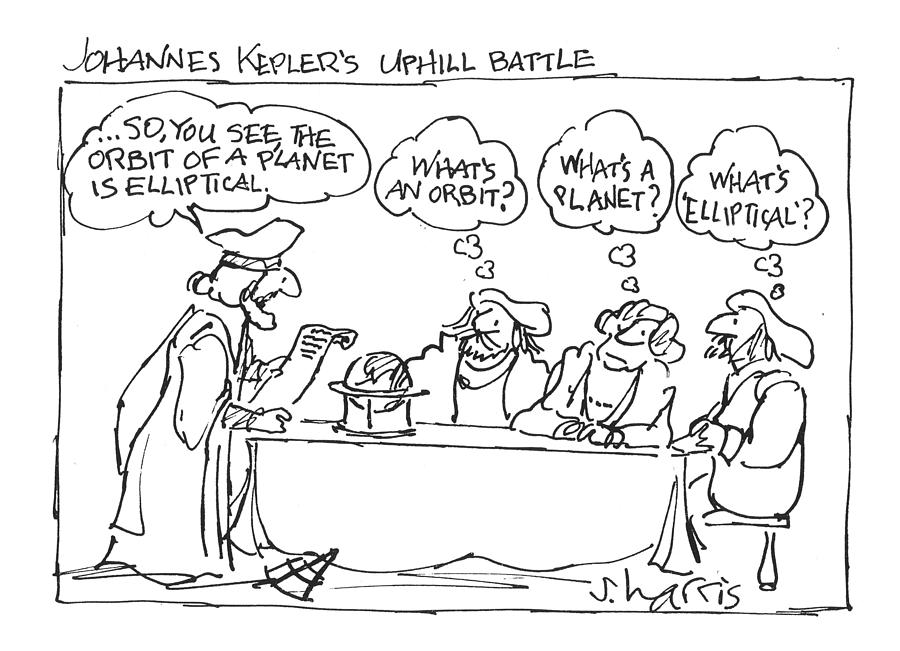 JOHANNES KEPLER'S UPHILL BATTLE
...SO, YOU SEE, THE
ORBIT OF A PLANET
IS ELLIPTICAL.
WHAT'S
AN ORBIT?
WHAT'S A
PLANET?
WHAT'S
'ELLIPTICAL'?
S. harris